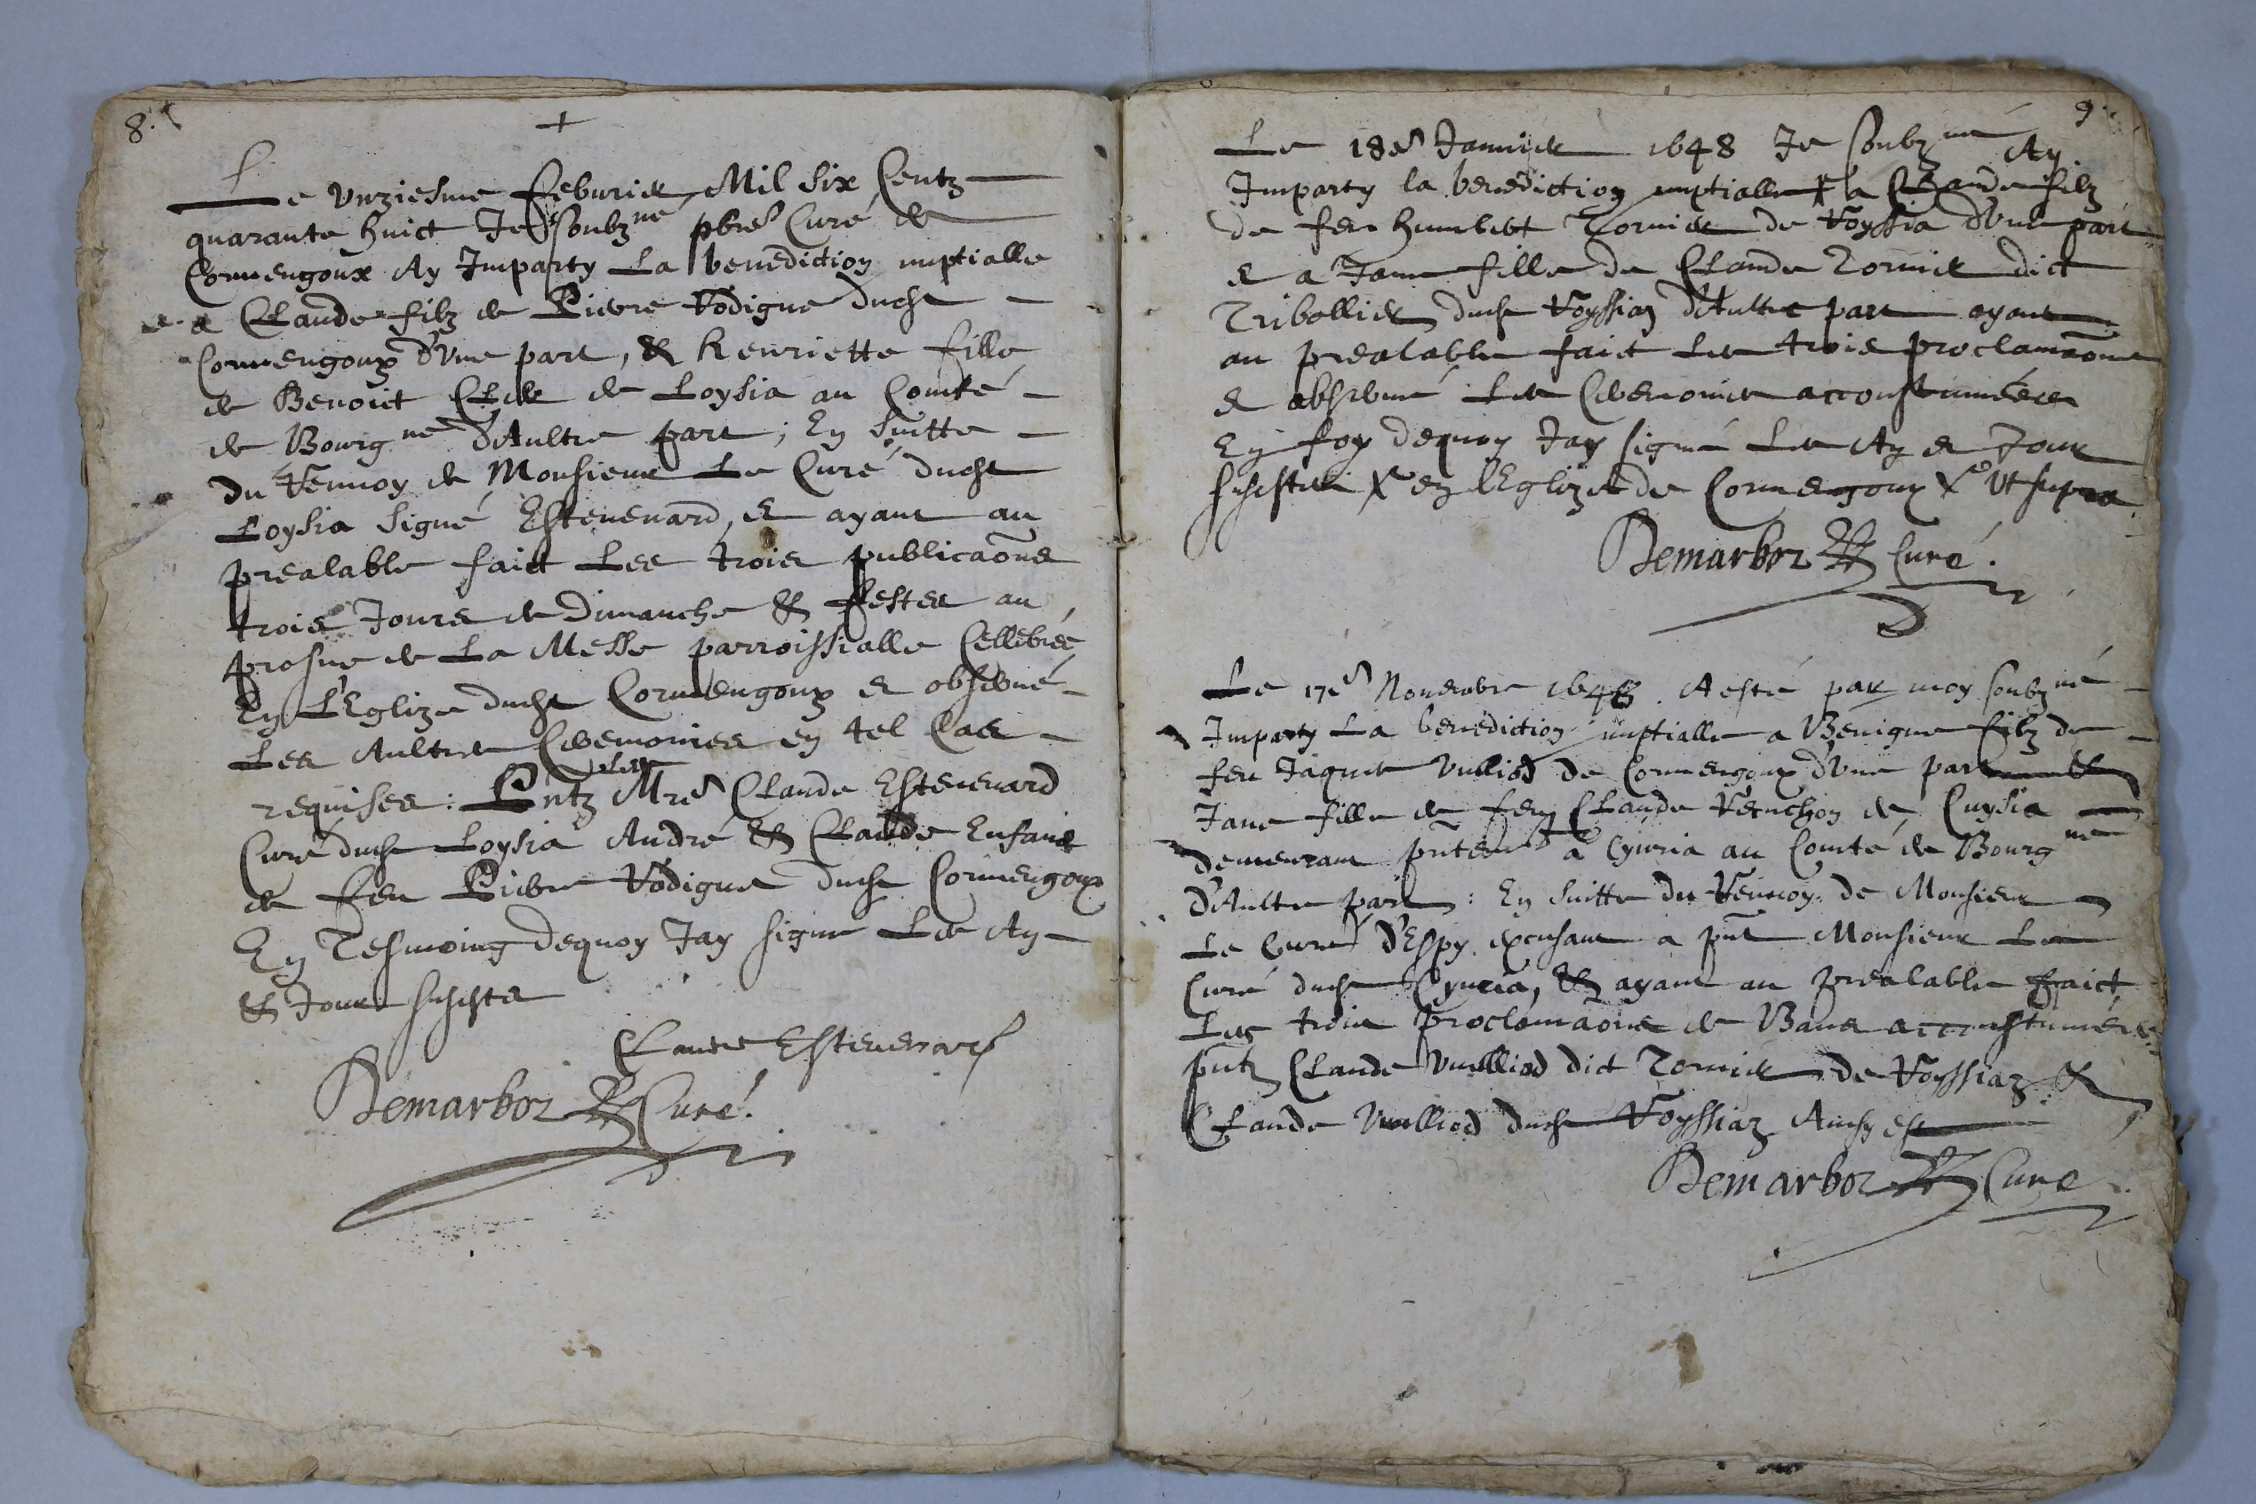 8.
+
Le Unziesme Feburier Mil Six Centz
quarante huict Je soubzne pbre Curé de
Cormengoux Ay Imparty La benediction nuptialle
a Claude filz de Pierre Vodigne dudt
Cormengoux d'Une part, & henriette fille
de Benoict de Loysia au Comté
de Bourgne d'Aultre part; En suitte
du Renuoy de Monsieur Le Curé dudt
Loysia signé Esteuenard, et ayant au
prealable faict Les trois publicaons
trois Jours de Dimanche & festes au
prosne de La Messe parroissialle Cellebrée
En L'Eglize dudt Cormengoux et obserué
Les Aultres Ceremonies en tel Cas
requises: Pntz Mre Claude Esteuenard
Curé dudt Loysia André & Claude Enfans
de feu Pierre Vodigne dudt Cormengoux
En Tesmoing dequoy Jay signé Les An
& Jour susdts
Claude Esteuenard
Demarboz Curé.
9.
Le 18e Januier 1648 Je soubzné Ay
Imparty la benediction nuptialle a Claude filz
de feu humbert Tornier de Voyssia d'Une part
et a Jane fille de Claude Tornier dict
Tribollier dudt Voyssiaz d'Aultre part ayant
au prealable faict Les trois proclamaons
et obserué Les Ceremonies accoustumées
En foy dequoy Jay signé Les An et Jour
susdts en l'Eglize de Cormengoux Ut supra
Demarboz Curé.
Le 17e Nouembre 1648. A esté par moy soubzné
Imparty La benediction nuptialle a Benigne filz de
feu Jaques Vulliod de Cormengoux d'Une part &
Jane fille de feu Claude de Cuysia
demeurant pntemt a Cyuria au Comté de Bourgne
d'Aultre part: En suitte du Renuoy de Monsieur
Le Curé d'Espy excusant a pnt Monsieur Le
Curé dudt Cyuria, & ayant au prealable faict
Les trois proclamaons de Bans accoustumées
pntz Claude Vuilliod dict Tornier de Voyssiaz &
Claude Vuilliod dudt Voyssiaz Ainsy est
Demarboz Curé